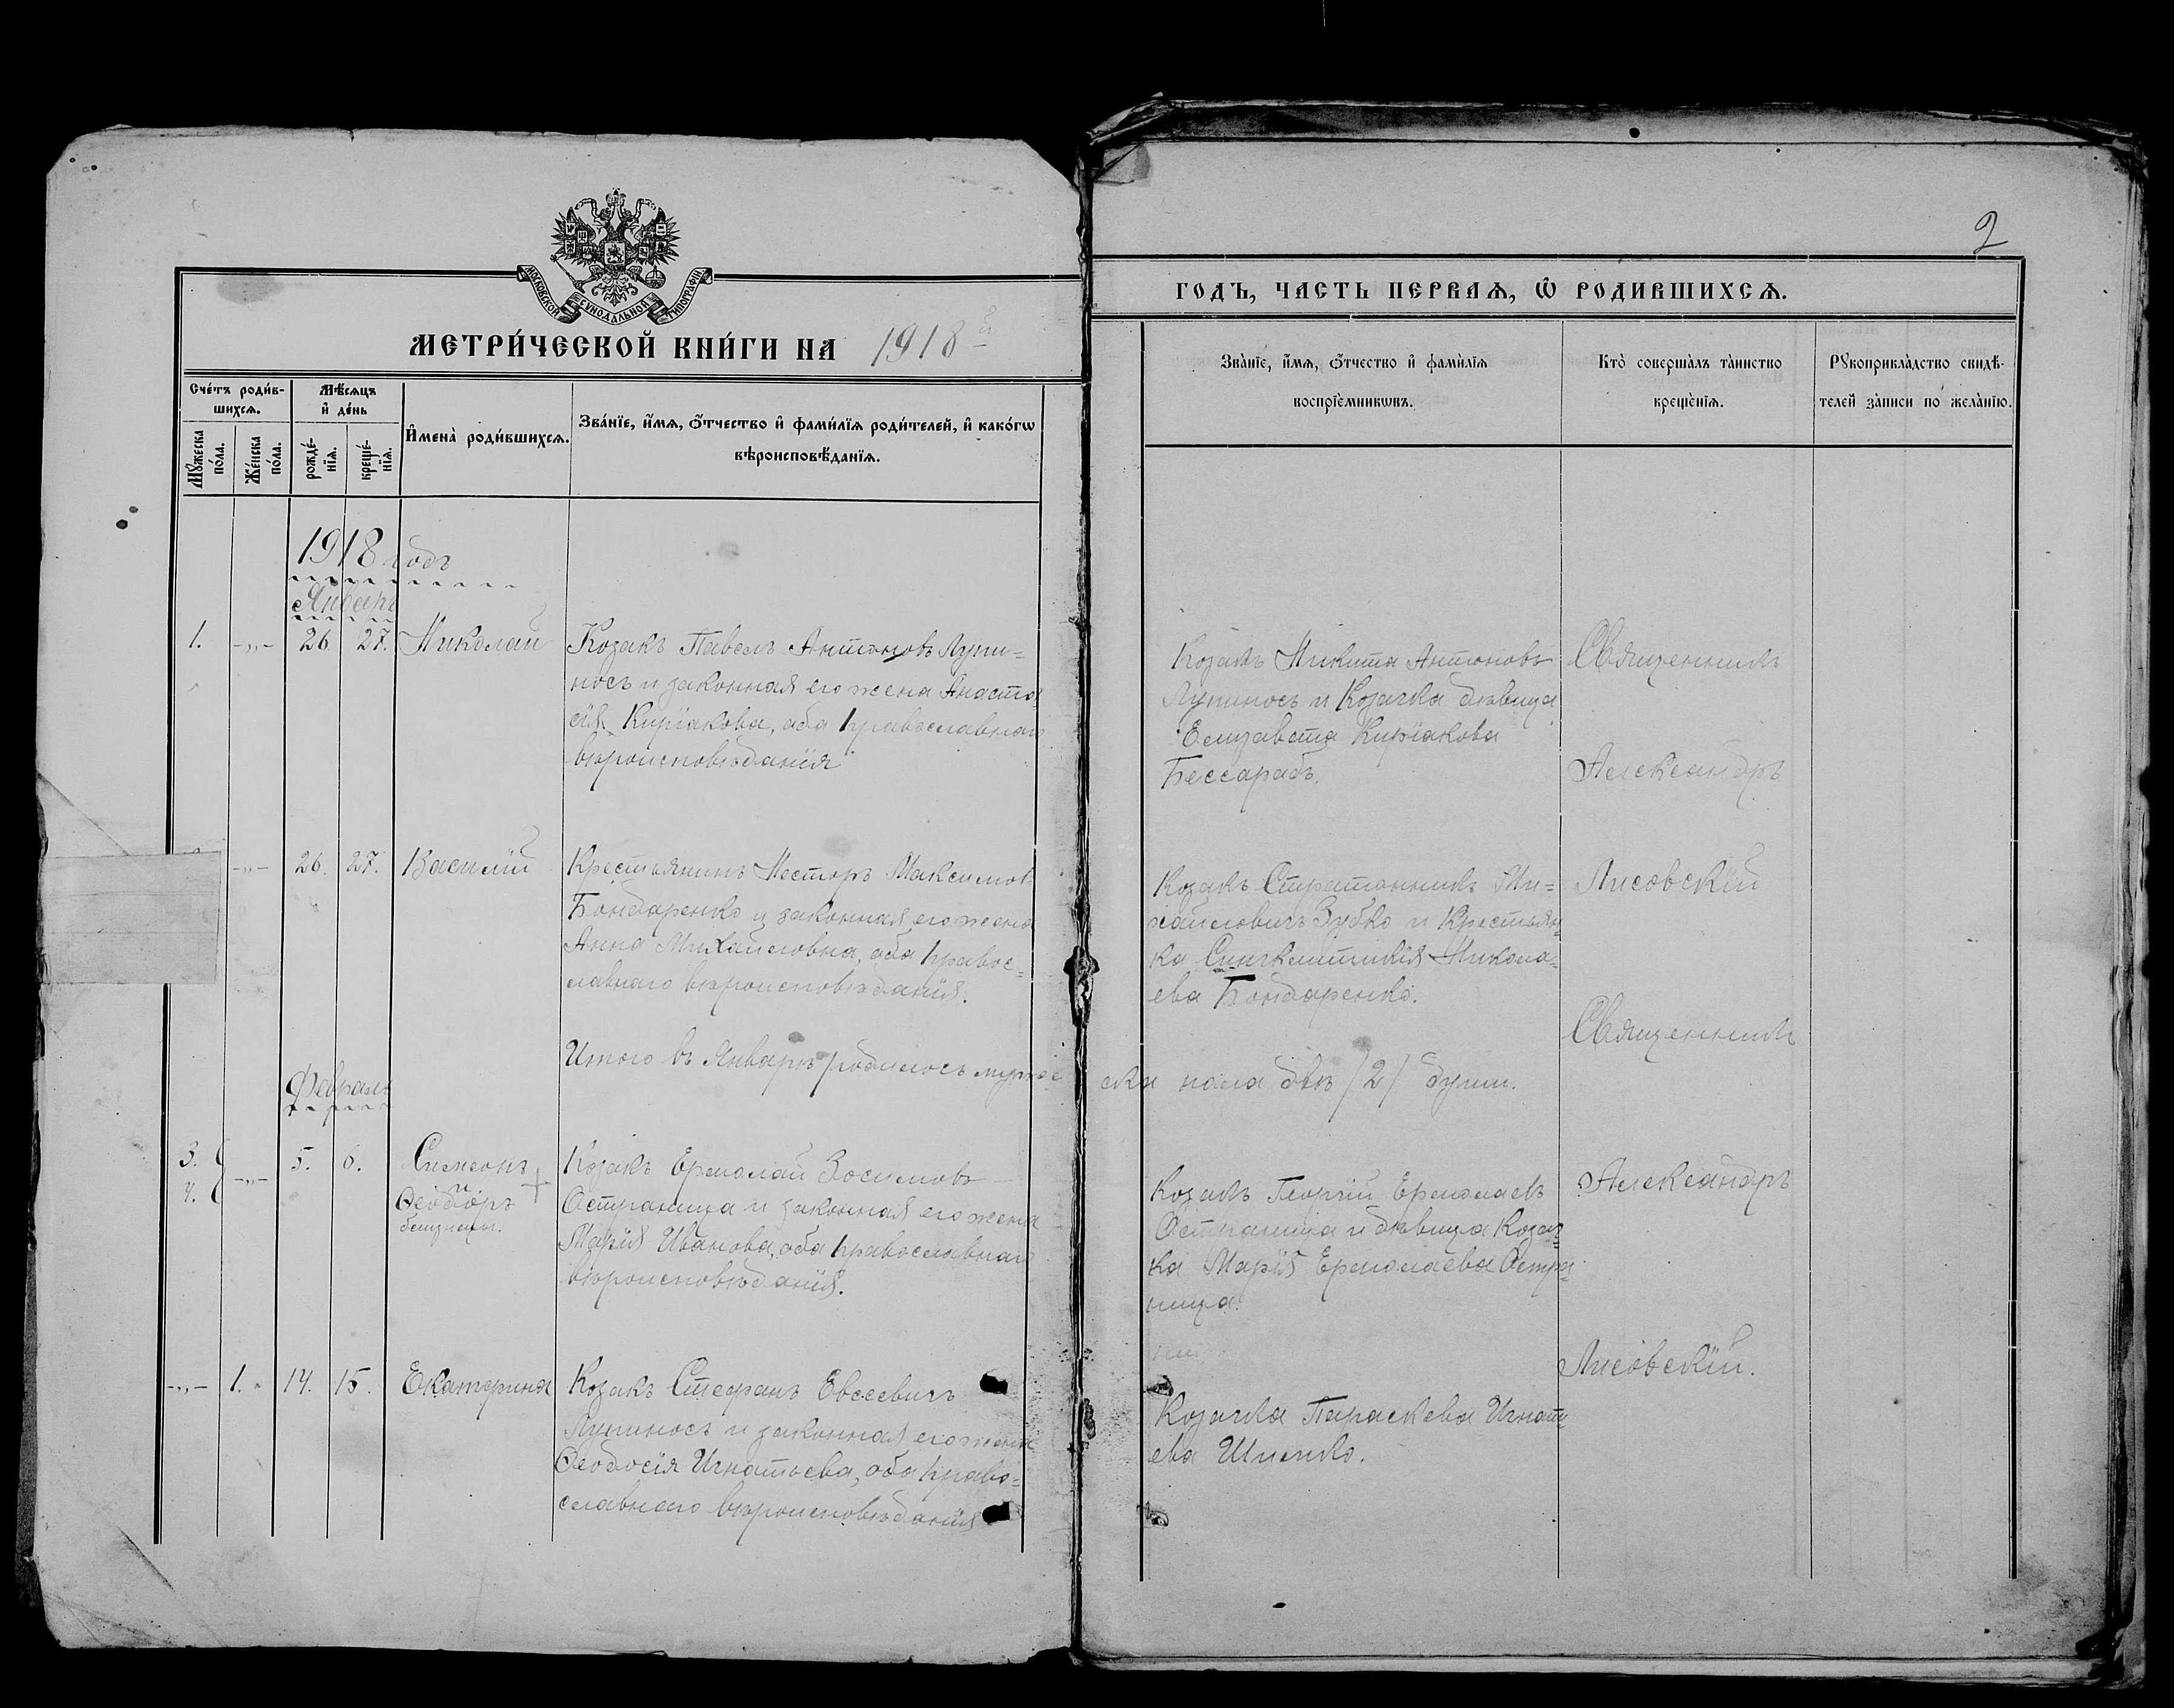 2
МОСКОВСКОЙ СУНОДАЛЬНОЙ ТИПОГРАФІИ
МЕТРИ́ЧЕСКОЙ КНИ́ГИ НА 1918й
ГОДЪ, ЧАСТЬ ПЕРВАѦ, Ѽ РОДИВШИХСѦ.
Сче́тъ роди́в-
шихсѧ.
Мѣ́сѧцъ
и҆ де́нь
Мꙋ́жеска
по́ла.
Же́нска
по́ла.
рожде́-
нїѧ.
креще́-
нїѧ.
И҆мена̀ роди́вшихсѧ.
Зва́нїе, и҆́мѧ, ѻ҆́тчество и҆ фами́лїѧ роди́телей, и҆ како́гѡ
вѣроисповѣ́данїѧ.
Зва́нїе, и҆́мѧ, ѻ҆́тчество и҆ фами́лїѧ
воспрїе́мникѡвъ.
Кто̀ соверша́лъ та́инство
креще́нїѧ.
Рꙋкоприкла́дство свидѣ́-
телей за́писи по жела́нїю.
1918 годъ
Январь
1. -„- 26. 27. Николай
Козакъ Павелъ Антоновъ Лупи=
носъ и законная его жена Анаста
сія Киріакова, оба православнаго
вѣроисповѣданія
Козакъ Никита Антоновъ
Лупиносъ и Козачка дѣвица
Елизавета Киріакова
Бессарабъ.
Священникъ
Александръ
-„- 26. 27. Василій
Крестьянинъ Несторъ Максимов
Бондаренко и законная его жена
Анна Михайловна, оба правос=
лавнаго вѣроисповѣданія.
Козакъ Стратонникъ Ми=
хайловичъ Зубко и Крестьян=
ка Синклитикія Никола=
ева Бондаренко.
Лисовскій
Итого въ Январѣ родилось мужес
ска пола двѣ /2/ души.
Священникъ
Февраль
3.
4. -„- 5. 6. Симеонъ
и
Ѳеодоръ
близнецы.
Козакъ Ермолай Зосимовъ
Остраница и законная его жена
Марія Иванова, оба православнаго
вѣроисповѣданія.
Козакъ Георгій Ермолаевъ
Остраница и дѣвица Козач=
ка Марія Ермолаева Остра=
ница.
Александръ
-„- 1. 14. 15. Екатерина
Козакъ Стефанъ Евсеевичъ
Лупиносъ и законная его жена
Ѳеодосія Игнатьева, оба право=
славнаго вѣроисповѣданія
Козачка Параскева Игнать
ева Шпилько.
Лисовскій.